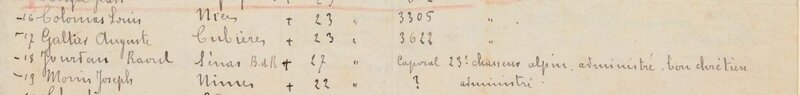 -16 Colomas Louis Nice + 23 " 3305 "
-17 Galtier Auguste Cubières + 23 " 3622 "
-18 Jourdan Raoul Sénas B.d.R + 27 " Caporal 23e chasseurs alpin, administré, bon chrétien
-19 Morin Joseph Nimes + 22 " ? administré